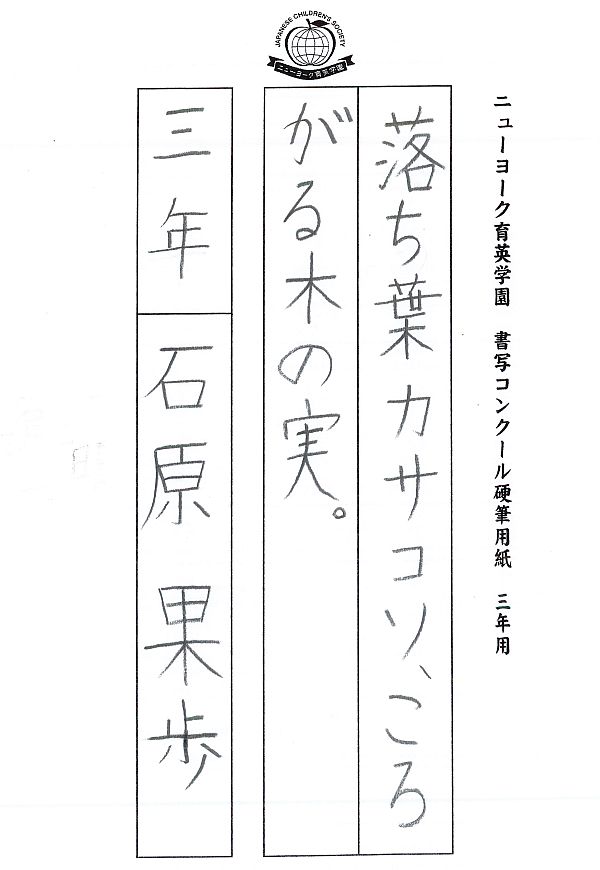 JAPANESE CHILDREN'S SOCIETY
ニューヨーク育英学園
ニューヨーク育英学園　書写コンクール硬筆用紙　三年用
落ち葉カサコソ、ころ
がる木の実。
三年　石原　果歩